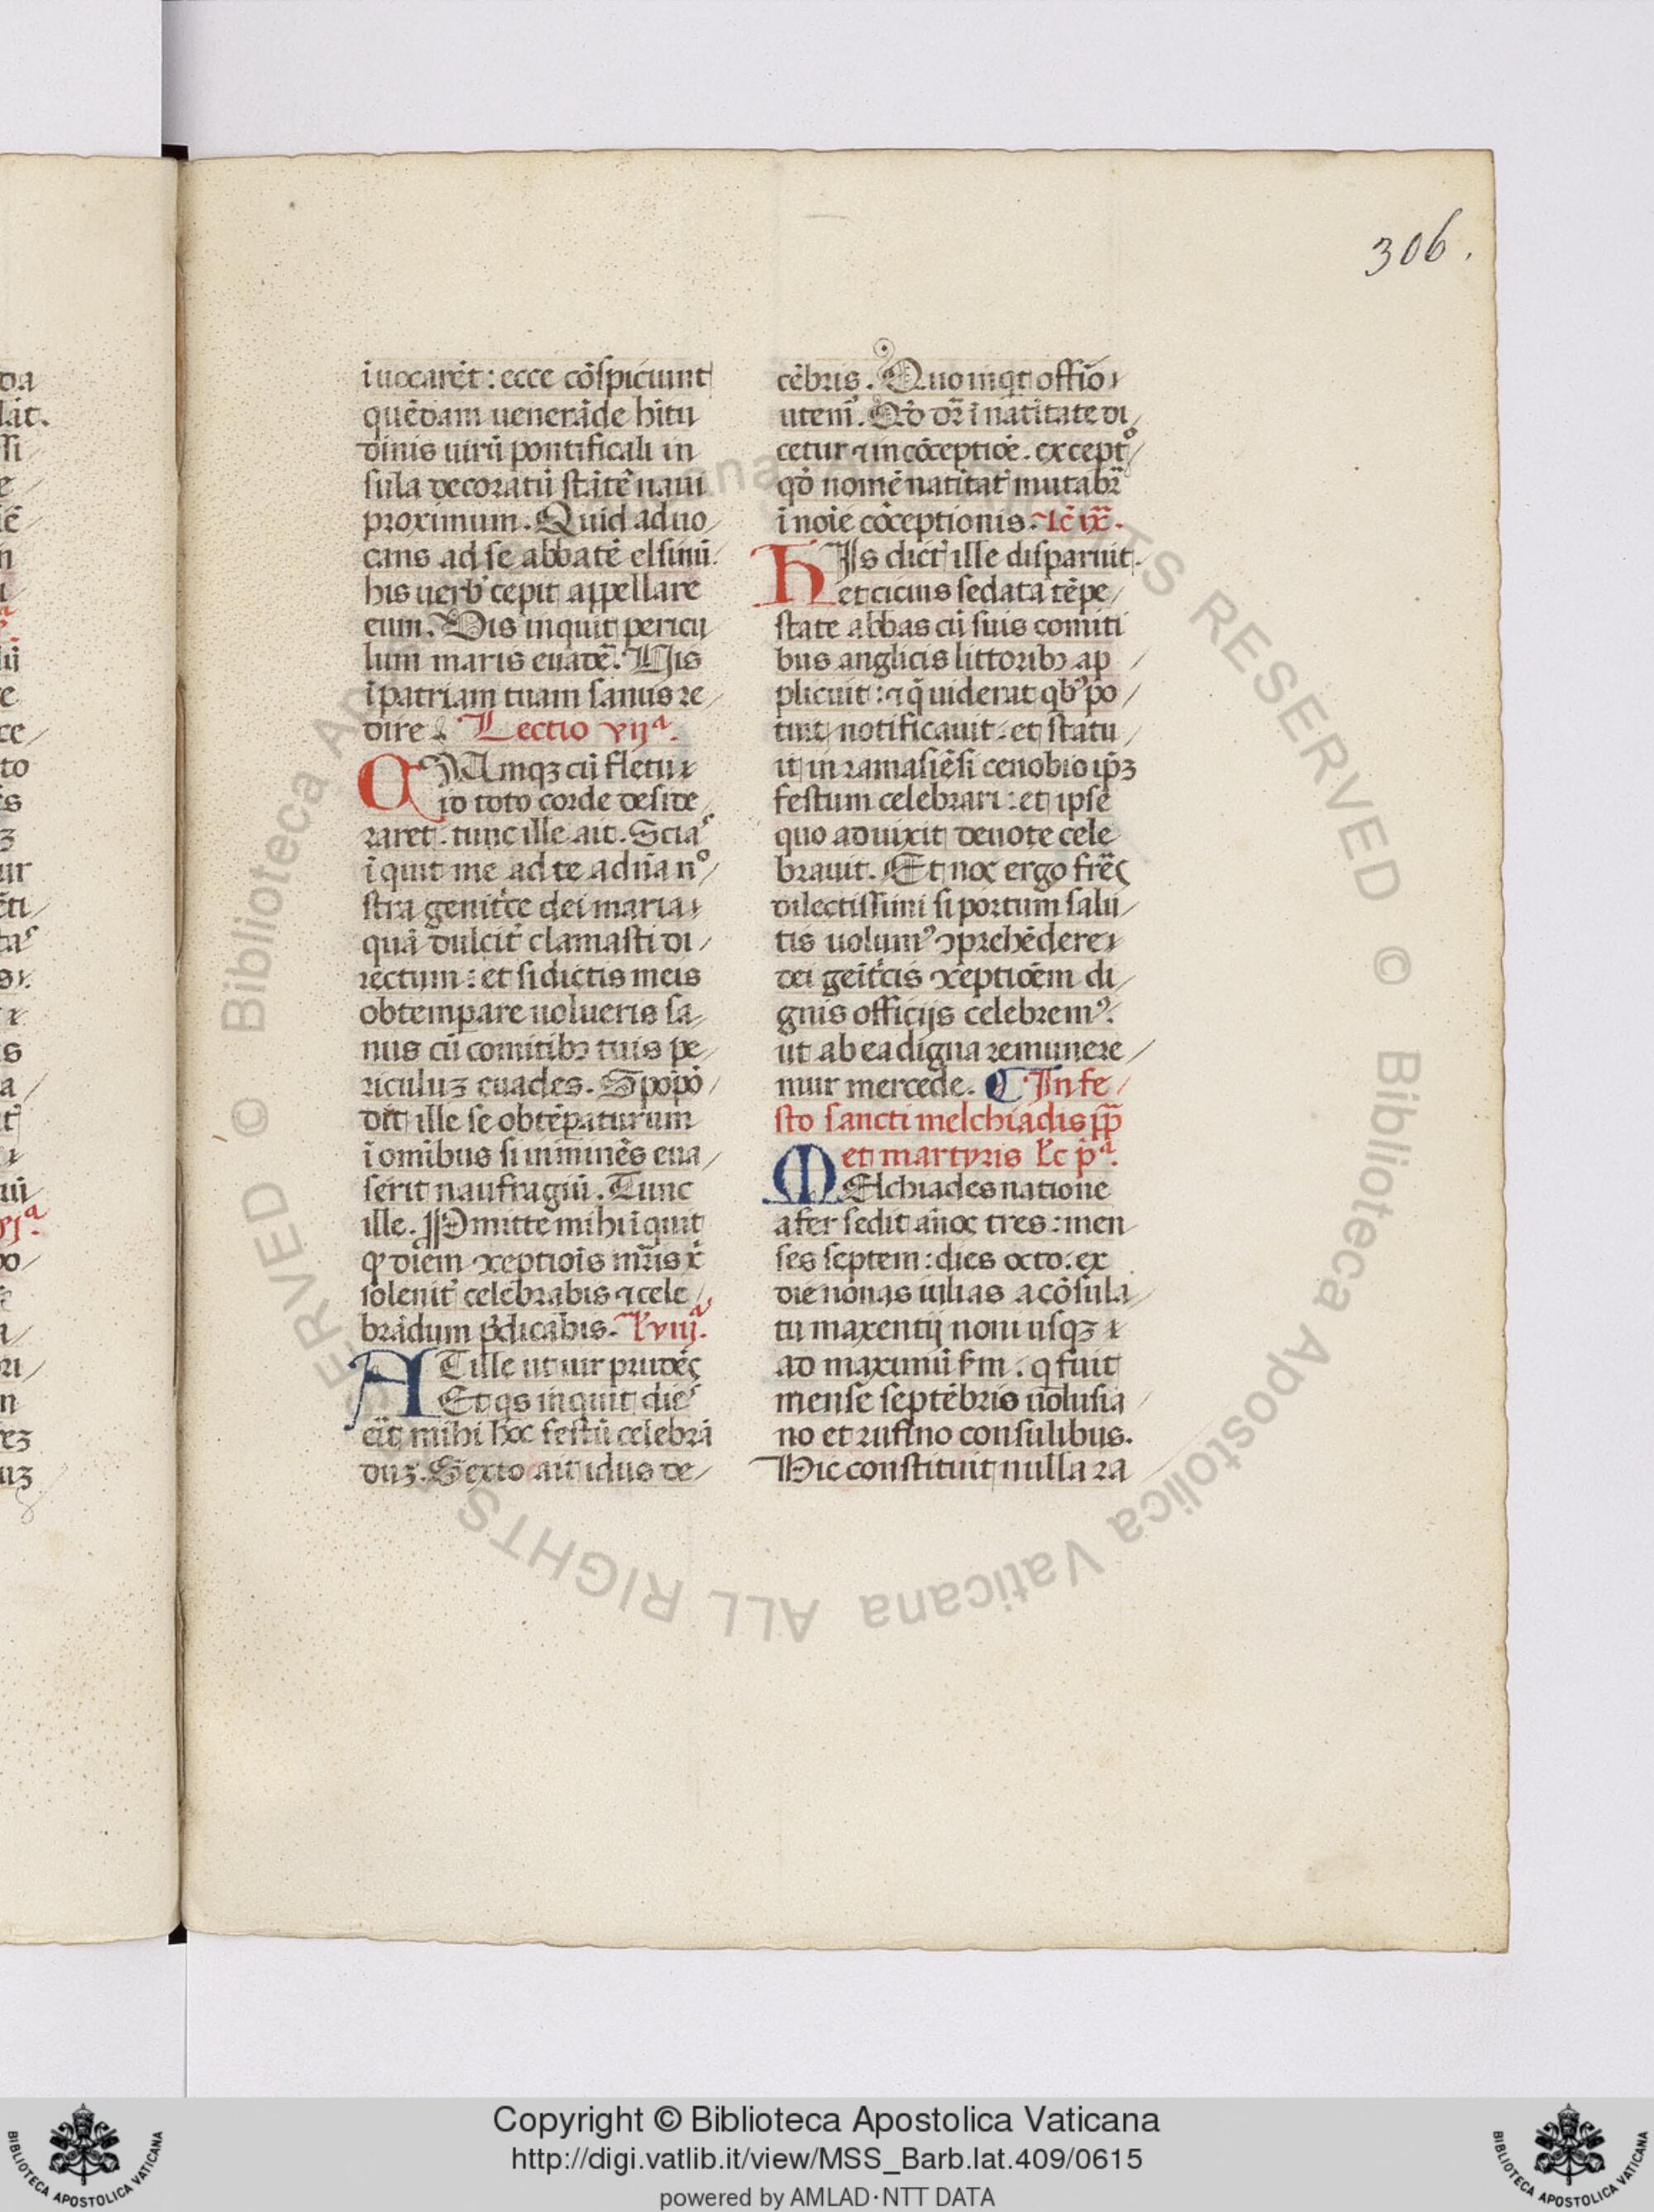 306.
iuocarēt: ecce cōspiciunt
quēdam uenerāde hītu
dinis uirū pontificali in
sula decoratū stātē naui
proximum. Quid aduo
cans ad se abbatē elsinū
his uerb' cepit appellare
eum. Vis inquit pericu
lum maris euadē. Uis
ī patriam tuam sanus re
dire. Lectio vijª.
QVAmqꝫ cū fletu
id toto corde deside
raret. tunc ille ait. Scias
īquit me ad te a dn̄a nº
stra genitce dei maria
quā dulcit' clamasti di
rectum: et si dictis meis
obtemꝑare uolueris sa
nus cū comitibꝫ tuis pe
riculuꝫ euades. Spopō
dit ille se obtēꝑaturum
ī omībus si inminēs eua
serit naufragiū. Tunc
ille. Pmitte mihi īquit
ꝙ diem ꝯceptiois mr̄is x
solenit' celebrabis ⁊ cele
brādum p̄dicabis. l' viijª.
AT ille ut uir prudēs
Et qs inquit dies
erit mihi hoc festū celebrā
duꝫ. Sexto ait idus de
cēbris. Quo inqt offīo
utem̄. Qd̄ or̄ ī natītate di
cetur ⁊ in cōceptiōe. exceptº
qd̄ nomē natitat' mutabr̄
ī noīe cōceptionis. lc̄ ix̄.
HIs dict' ille disparuit.
et cicius sedata tēpe
state abbas cū suis comiti
bus anglicis littoribꝫ ap
plicuit: ⁊ q̄ uiderat qbꝰ po
tuit notificauit. et statu
it in ramasiēsi cenobio ip̄ꝫ
festum celebrari: et ipse
quo aduixit deuote cele
brauit. Et nos ergo fr̄es
dilectissimi si portum salu
tis uolumꝰ ꝯprehēdere
dei genitcis ꝯceptiōem di
gnis officijs celebremꝰ.
ut ab ea digna remunere
mur mercede. ¶ In fe
sto sancti melchiadis pp̄
et martyris Lc̄ pª.
MElchiades natione
afer sedit an̄os tres: men
ses septem: dies octo. ex
die nonas iulias a cōsula
tu maxentij noni usqꝫ
ad maximū
 mense septēbris uolusia
no et rufino consulibus.
Hic constituit nulla ra
Copyright © Biblioteca Apostolica Vaticana
http://digi.vatlib.it/view/MSS_Barb.lat.409/0615
powered by AMLAD·NTT DATA